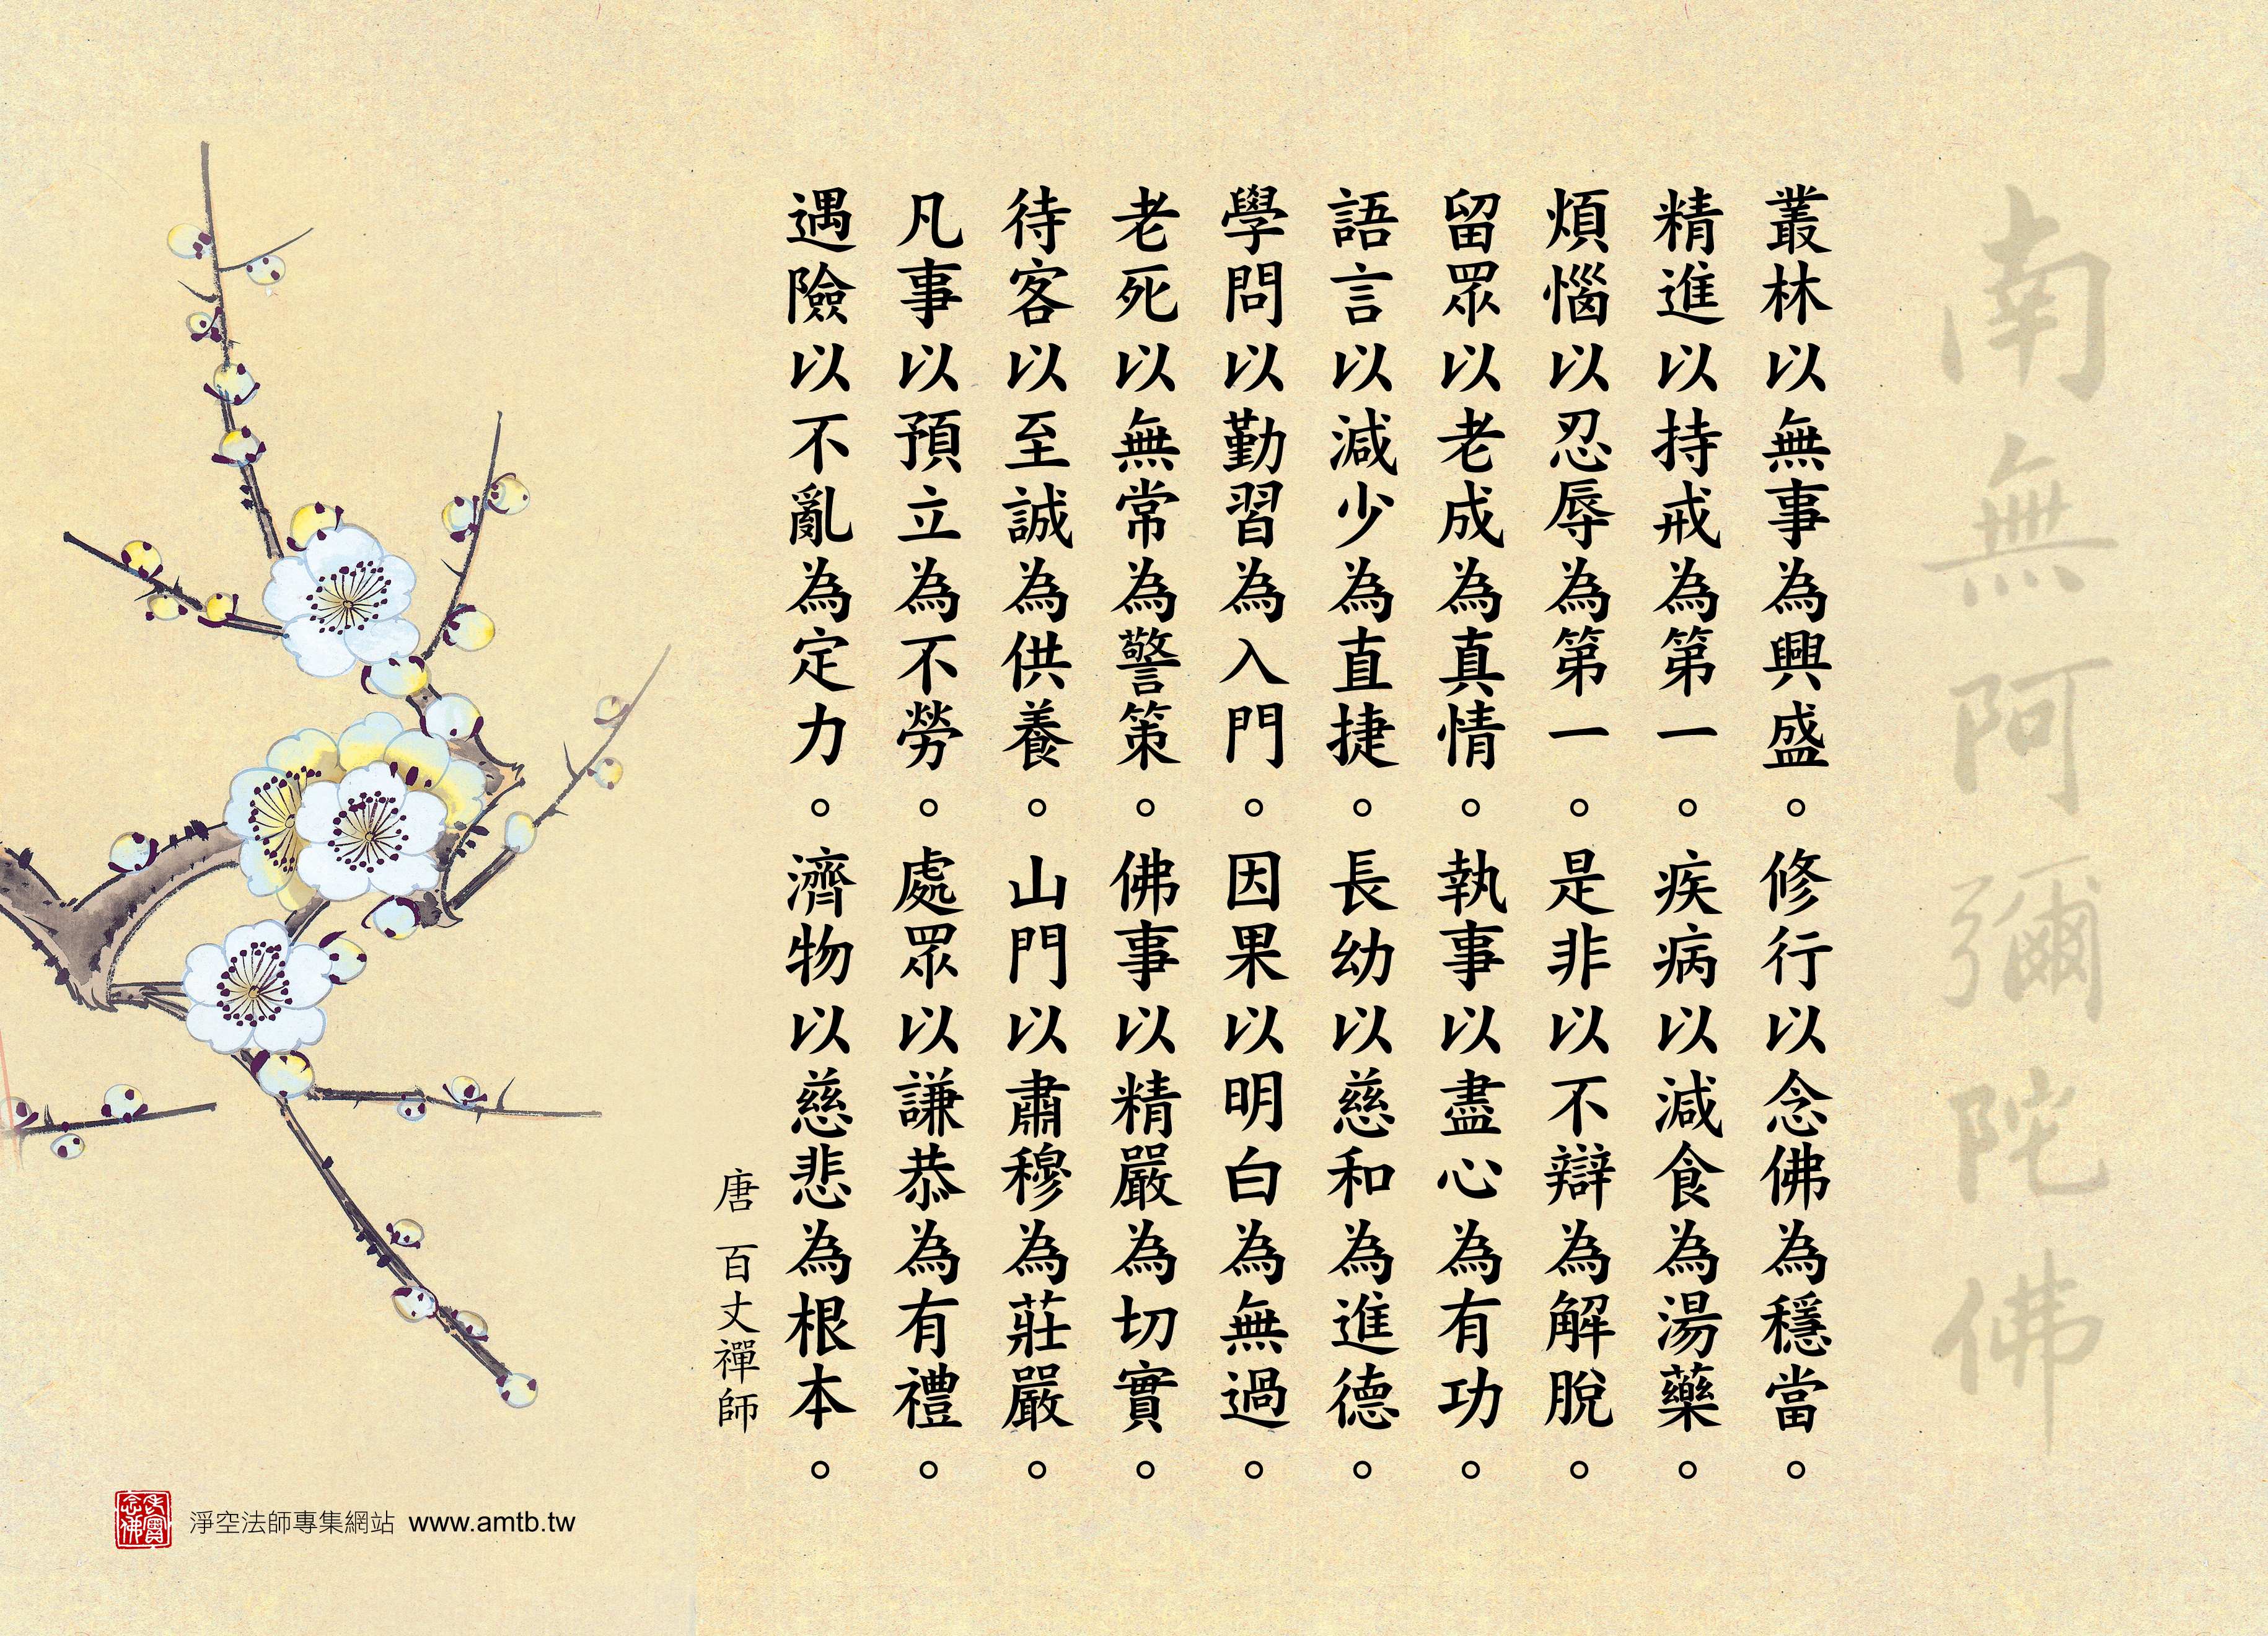 南無阿彌陀佛
叢林以無事為興盛。修行以念佛為穩當。
精進以持戒為第一。疾病以減食為湯藥。
煩惱以忍辱為第一。是非以不辯為解脫。
留眾以老成為真情。執事以盡心為有功。
語言以減少為直捷。長幼以慈和為進德。
學問以勤習為入門。因果以明白為無過。
老死以無常為警策。佛事以精嚴為切實。
待客以至誠為供養。山門以肅穆為莊嚴。
凡事以預立為不勞。處眾以謙恭為有禮。
遇險以不亂為定力。濟物以慈悲為根本。
唐 百丈禪師
老實念佛
淨空法師專集網站 www.amtb.tw